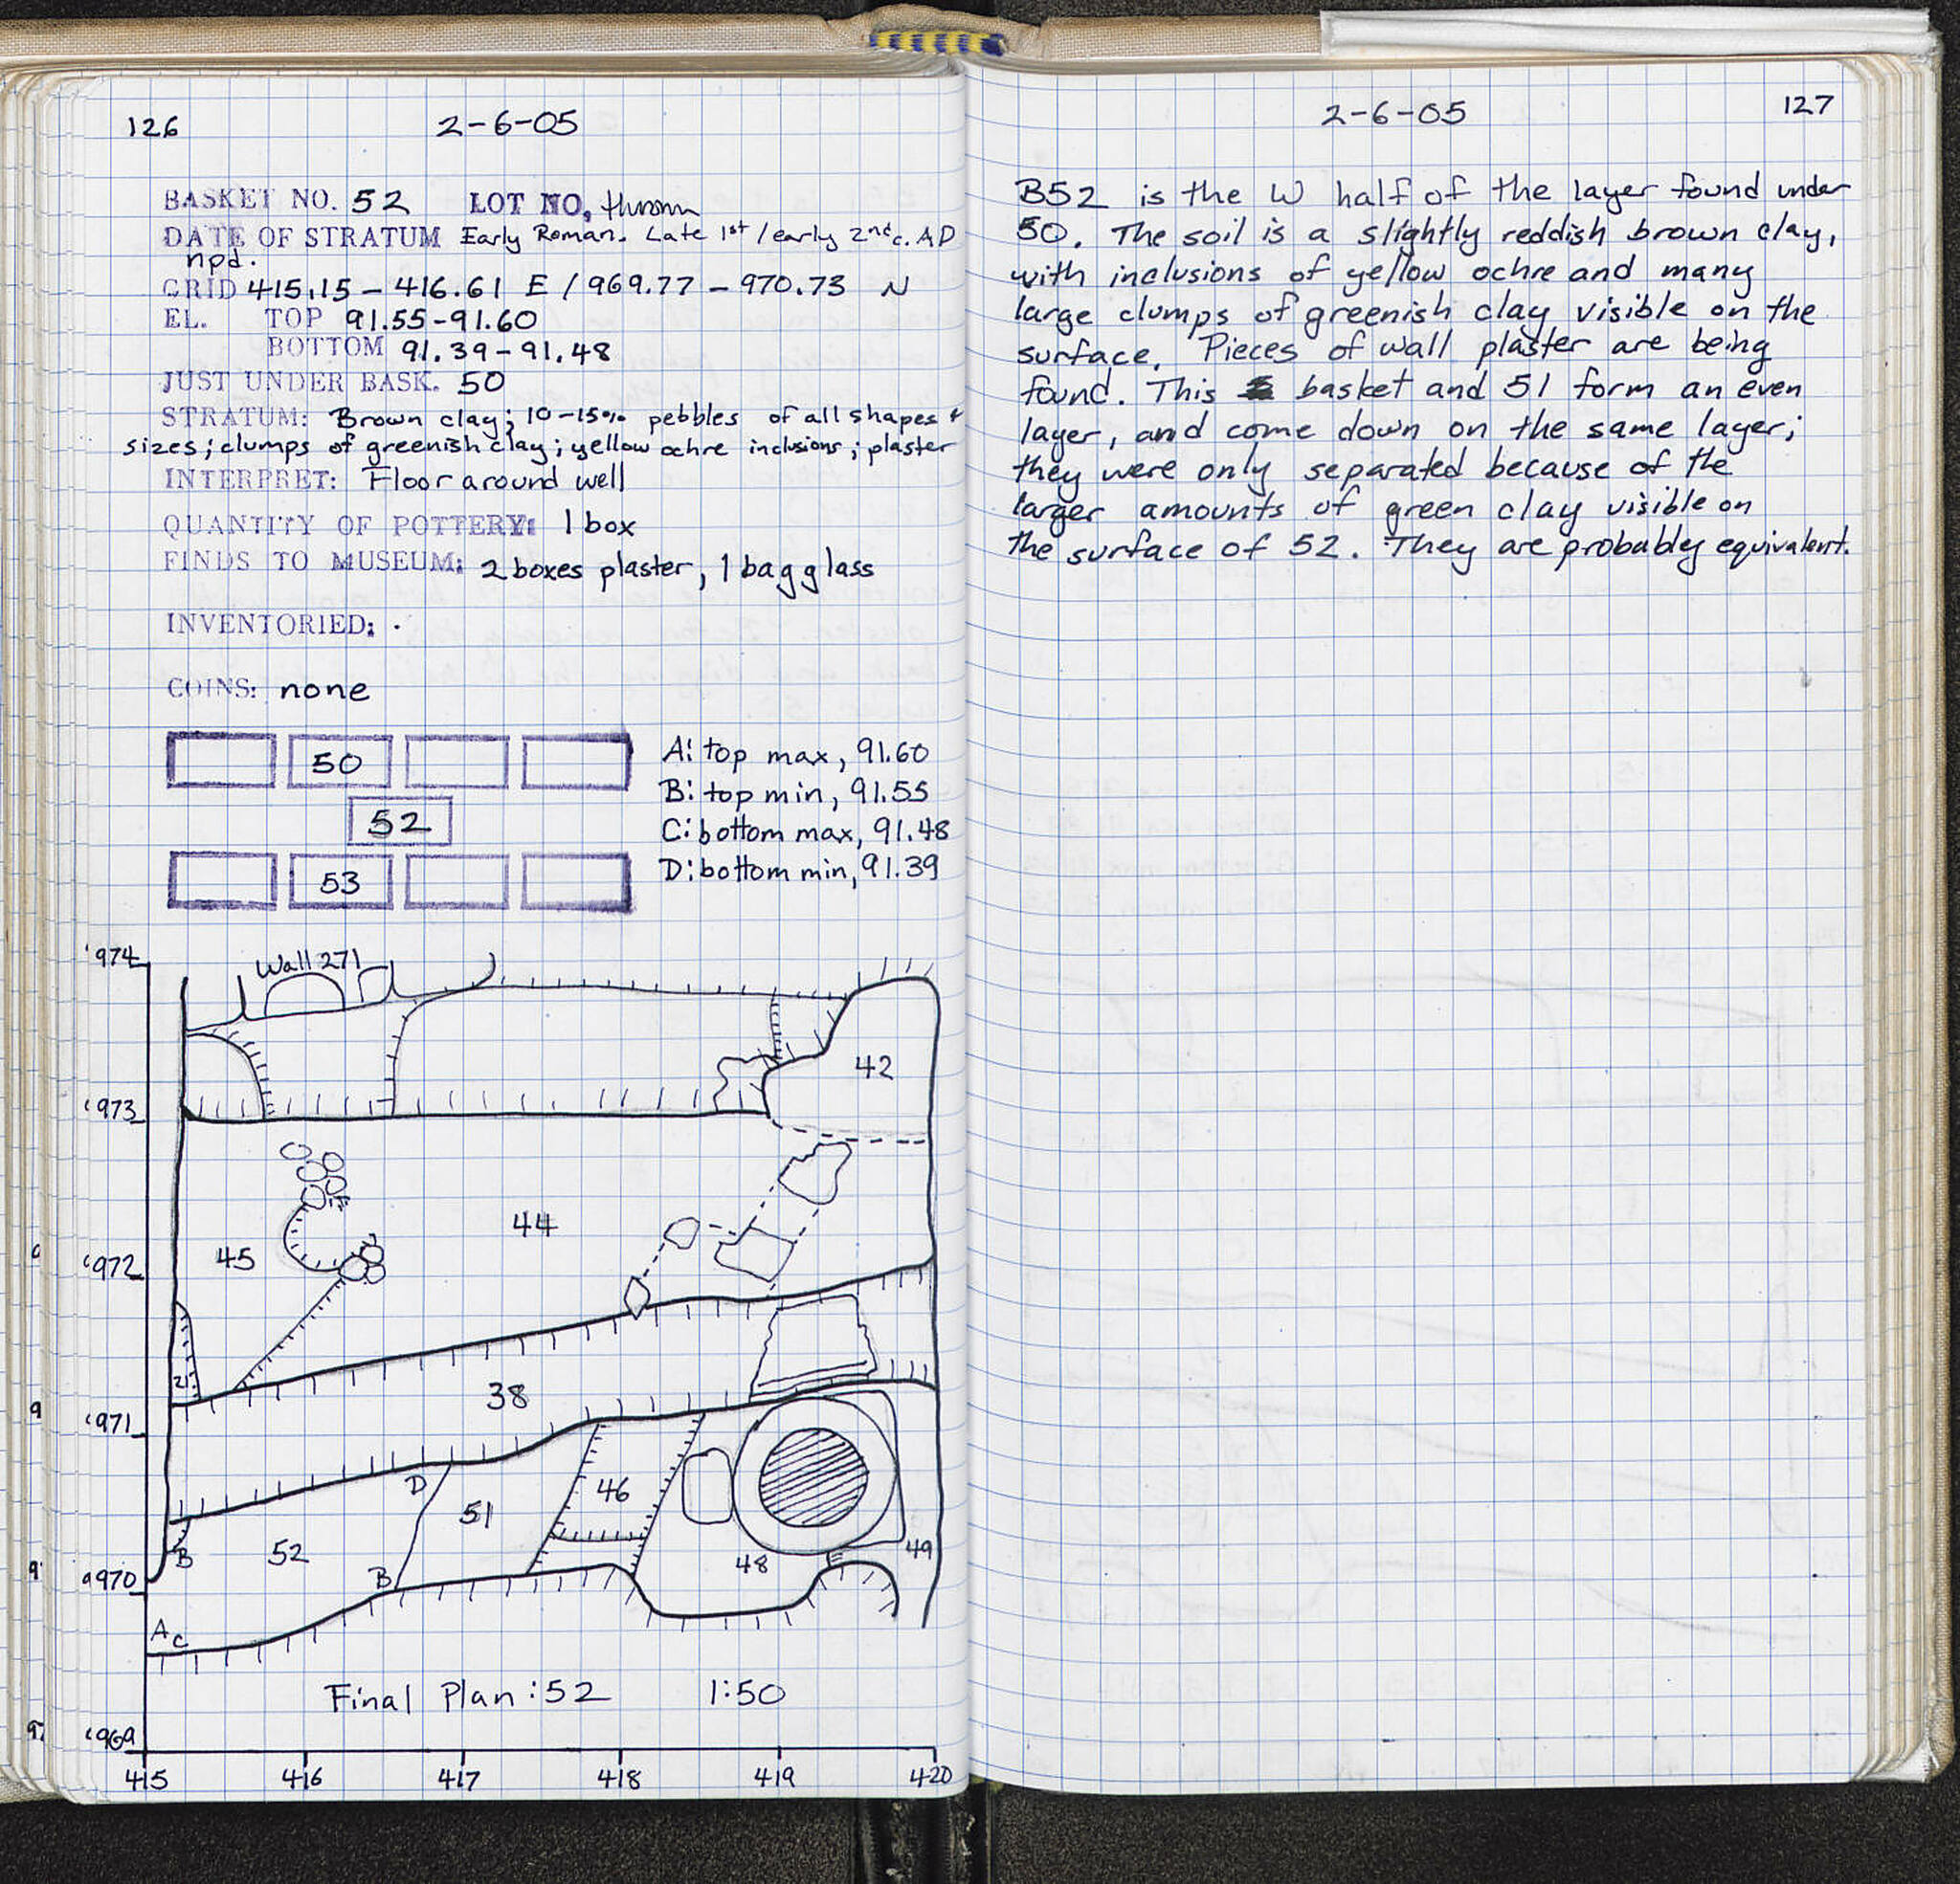 126
2-6-05
BASKET NO. 52 LOT NO. thrown
DATE OF STRATUM Early Roman. Late 1st / early 2nd c. AD
npd.
GRID 415.15 - 416.61 E / 969.77 - 970.73 N
EL. TOP 91.55-91.60
BOTTOM 91.39-91.48
JUST UNDER BASK. 50
STRATUM: Brown clay; 10-15% pebbles of all shapes +
sizes; clumps of greenish clay; yellow ochre inclusions; plaster
INTERPRET: Floor around well
QUANTITY OF POTTERY: 1 box
FINDS TO MUSEUM: 2 boxes plaster, 1 bag glass
INVENTORIED: .
COINS: none
50
52
53
A: top max, 91.60
B: top min, 91.55
C: bottom max, 91.48
D: bottom min, 91.39
'974
Wall 271
42
'973
44
45
'972
21
38
'971
D
46
51
B
52
48
49
B
'970
A C
Final Plan: 52 1:50
'969
415 416 417 418 419 420
2-6-05
127
B52 is the W half of the layer found under
50. The soil is a slightly reddish brown clay,
with inclusions of yellow ochre and many
large clumps of greenish clay visible on the
surface. Pieces of wall plaster are being
found. This basket and 51 form an even
layer, and come down on the same layer;
they were only separated because of the
larger amounts of green clay visible on
the surface of 52. They are probably equivalent.